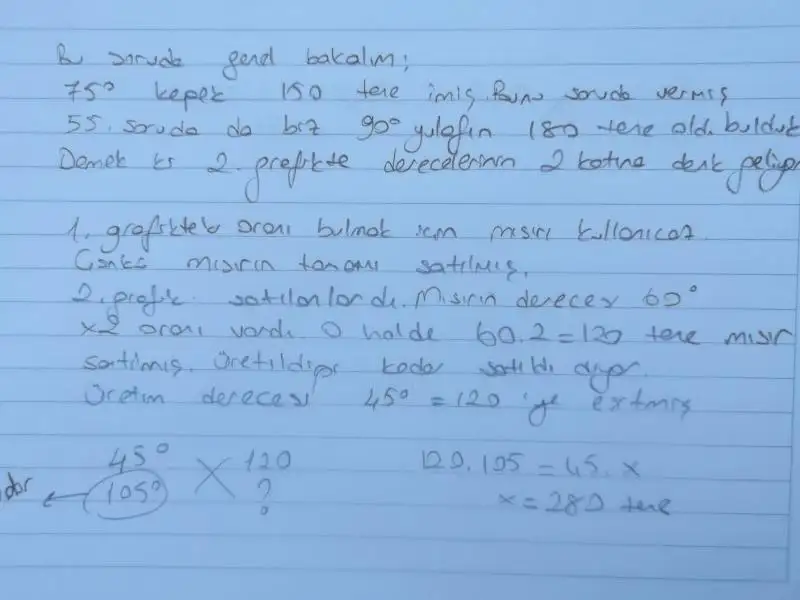 Bu soruda genel bakalım;
75° kepek 150 tane imiş. Bunu soruda vermiş
55. soruda da biz 90° yulafın 180 tane old. bulduk
Demek ki 2. grafikte derecelerinin 2 katına denk geliyor
1. grafikteki oranı bulmak için mısırı kullanıcaz.
Çünkü mısırın tamamı satılmış.
2. grafik satılanlardı. Mısırın derecesi 60°
x2 oranı vardı. O halde 60.2=120 tane mısır
satılmış. Üretildiği kadar satıldı diyor.
Üretim derecesi 45° = 120 'ye eşitmiş
45° 120
105° ?
120.105 = 45.x
x = 280 tane